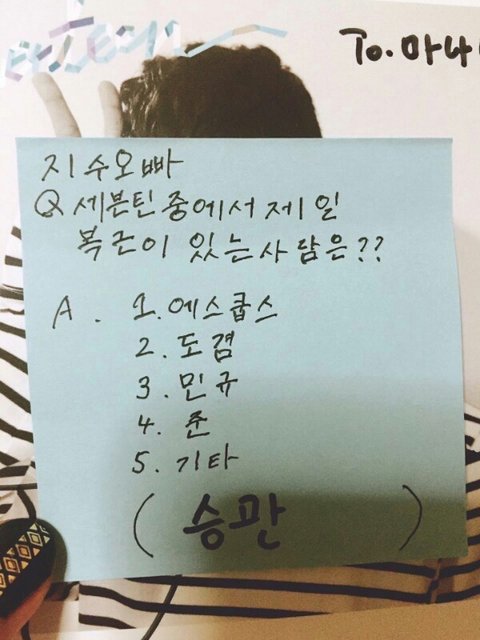 To. 마나
지수오빠
Q 세븐틴 중에서 제일
복근이 있는 사람은??
A. 1. 에스쿱스
2. 도겸
3. 민규
4. 준
5. 기타
( 승관 )